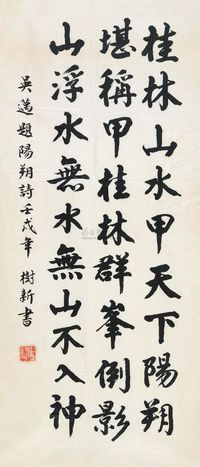 桂林山水甲天下陽朔
堪稱甲桂林群峯倒影
山浮水無水無山不入神
吳邁題陽朔詩壬戌年 樹新書